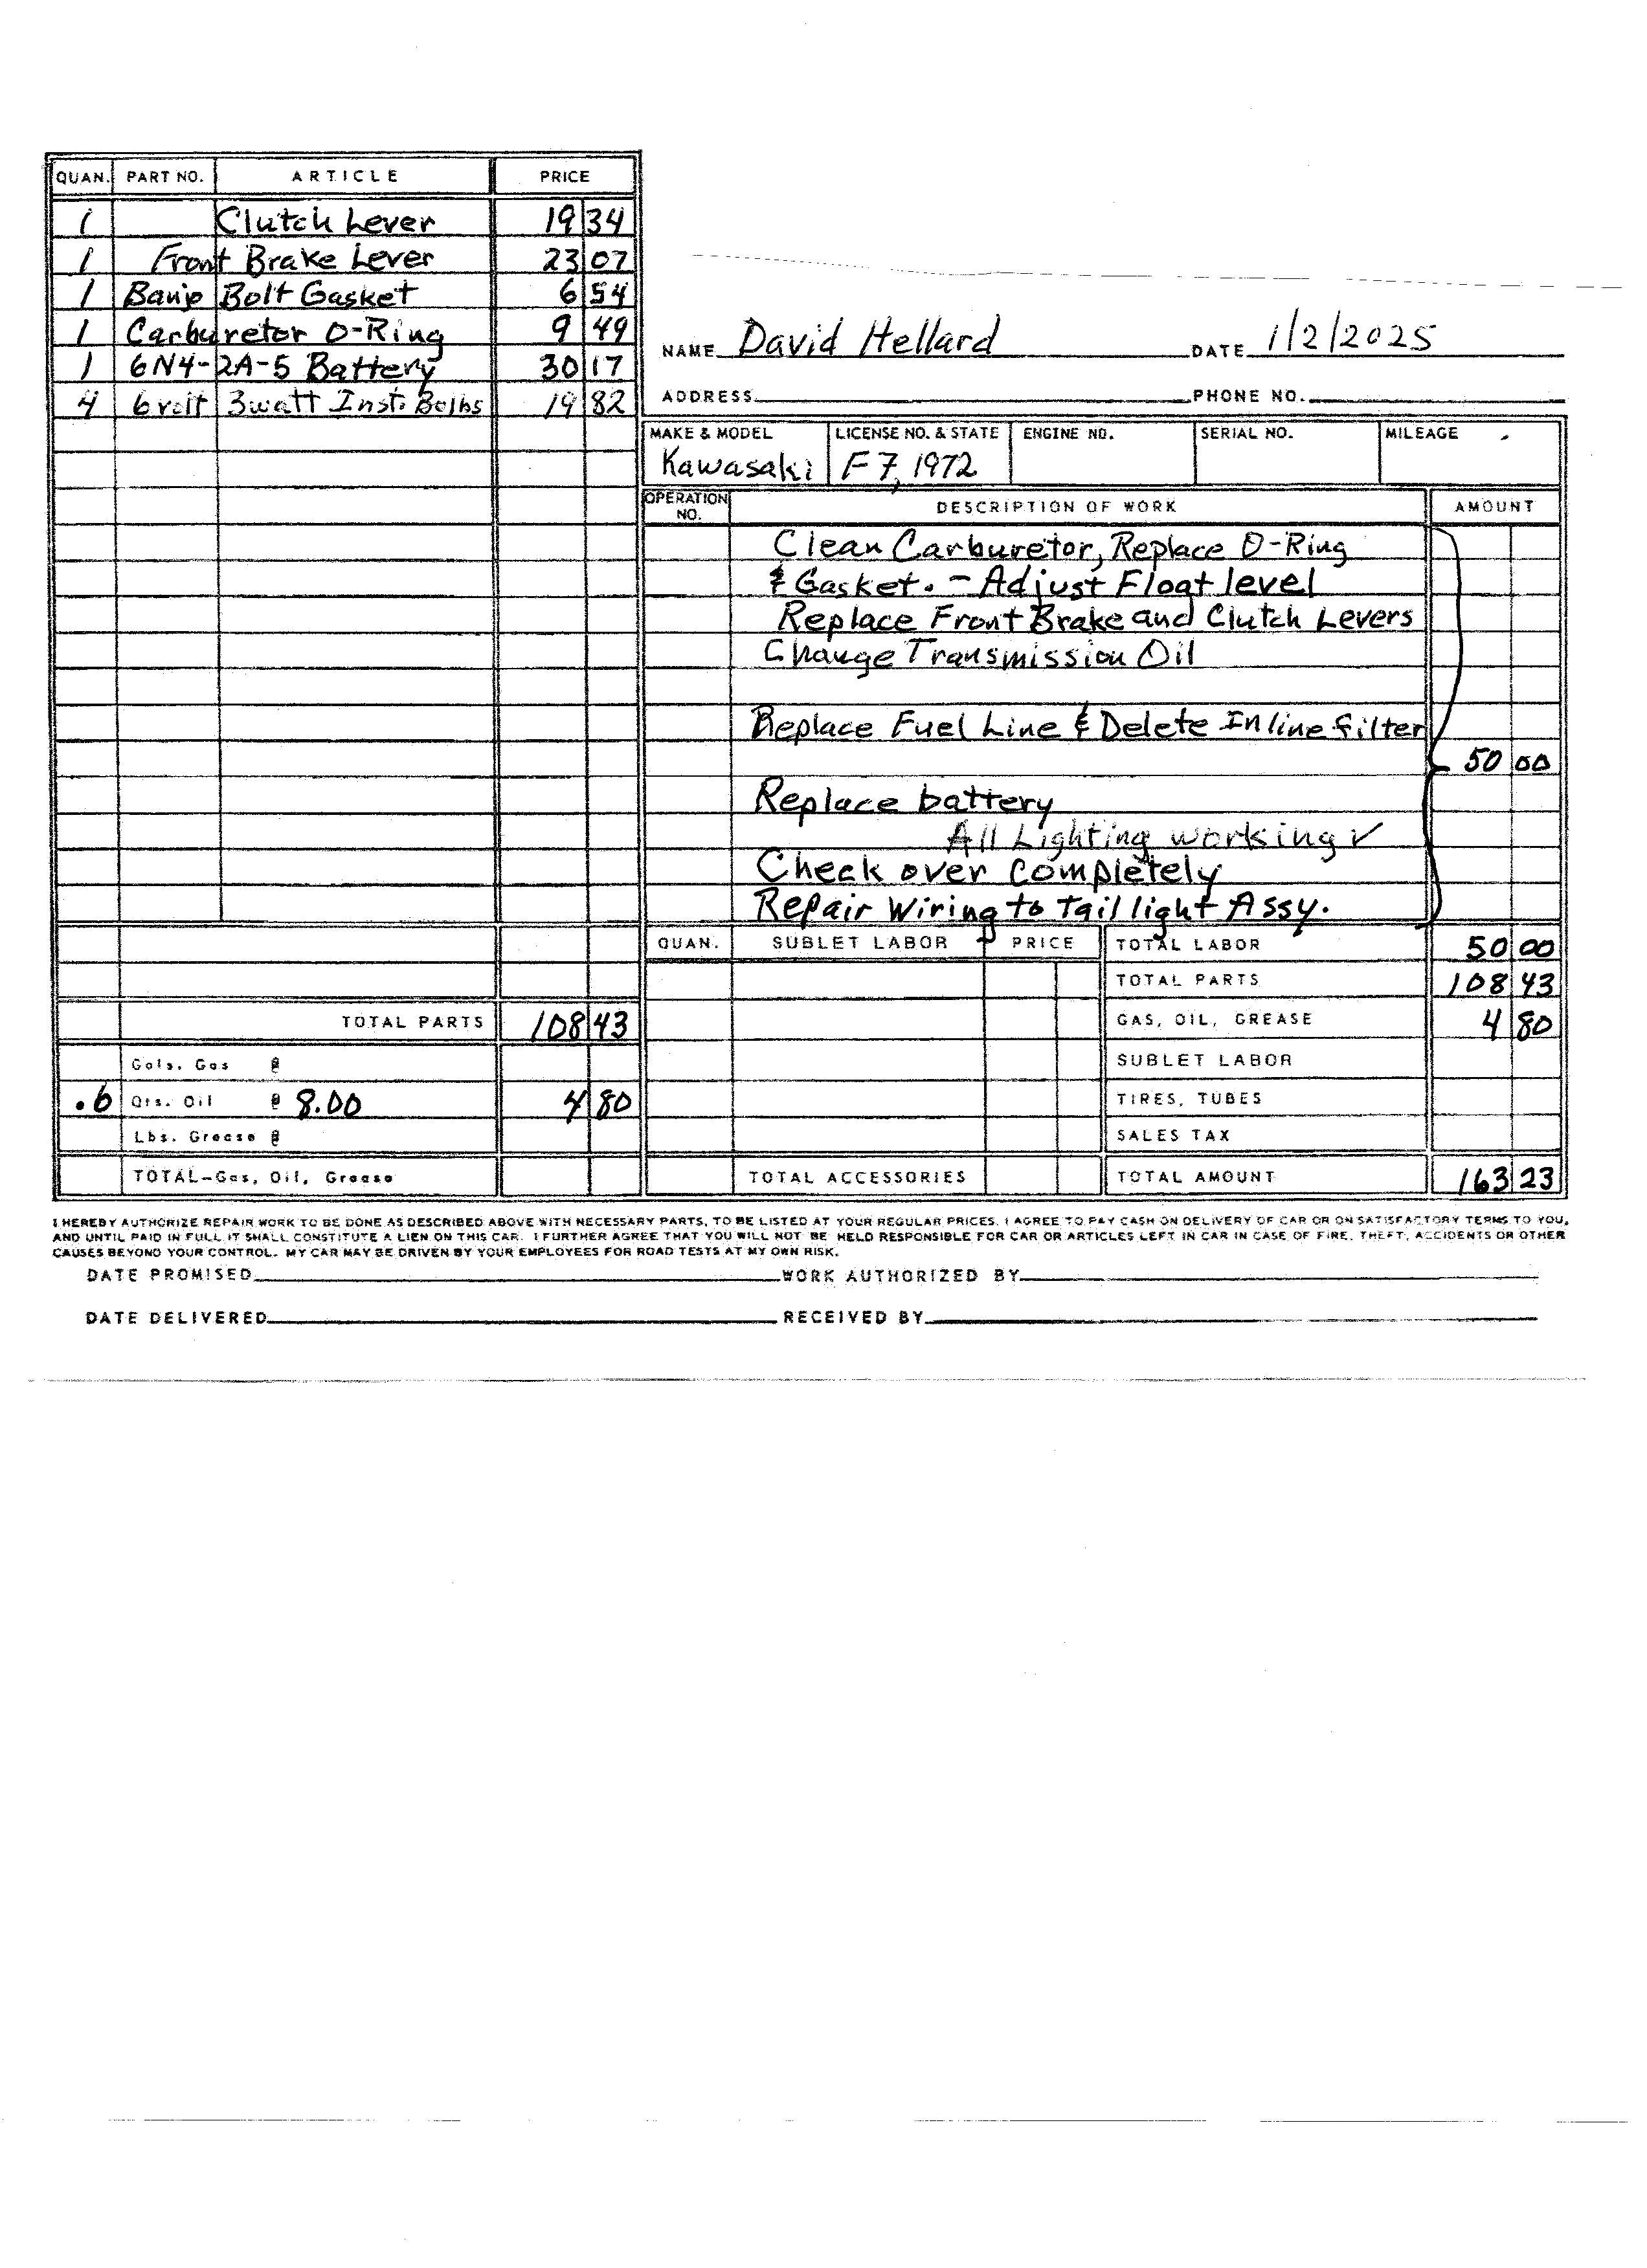 QUAN. PART NO. ARTICLE PRICE
1 Clutch Lever 19 34
1 Front Brake Lever 23 07
1 Banjo Bolt Gasket 6 54
1 Carburetor O-Ring 9 49
1 6N4-2A-5 Battery 30 17
4 6 volt 3watt Inst. Bolbs 19 82
NAME David Hellard DATE 1/2/2025
ADDRESS PHONE NO.
MAKE & MODEL LICENSE NO. & STATE ENGINE NO. SERIAL NO. MILEAGE
Kawasaki F7, 1972
OPERATION NO. DESCRIPTION OF WORK AMOUNT
Clean Carburetor, Replace O-Ring
& Gasket. - Adjust Float level
Replace Front Brake and Clutch Levers
Change Transmission Oil
Replace Fuel Line & Delete Inline Filter
50 00
Replace battery
All Lighting working ✓
Check over completely
Repair Wiring to Tail light Assy.
QUAN. SUBLET LABOR PRICE TOTAL LABOR 50 00
TOTAL PARTS 108 43
TOTAL PARTS 108 43 GAS, OIL, GREASE 4 80
Gals. Gas @ SUBLET LABOR
.6 Qts. Oil @ 8.00 4 80 TIRES, TUBES
Lbs. Grease @ SALES TAX
TOTAL-Gas, Oil, Grease TOTAL ACCESSORIES TOTAL AMOUNT 163 23
I HEREBY AUTHORIZE REPAIR WORK TO BE DONE AS DESCRIBED ABOVE WITH NECESSARY PARTS, TO BE LISTED AT YOUR REGULAR PRICES. I AGREE TO PAY CASH ON DELIVERY OF CAR OR ON SATISFACTORY TERMS TO YOU,
AND UNTIL PAID IN FULL IT SHALL CONSTITUTE A LIEN ON THIS CAR. I FURTHER AGREE THAT YOU WILL NOT BE HELD RESPONSIBLE FOR CAR OR ARTICLES LEFT IN CAR IN CASE OF FIRE, THEFT, ACCIDENTS OR OTHER
CAUSES BEYOND YOUR CONTROL. MY CAR MAY BE DRIVEN BY YOUR EMPLOYEES FOR ROAD TESTS AT MY OWN RISK.
DATE PROMISED WORK AUTHORIZED BY
DATE DELIVERED RECEIVED BY